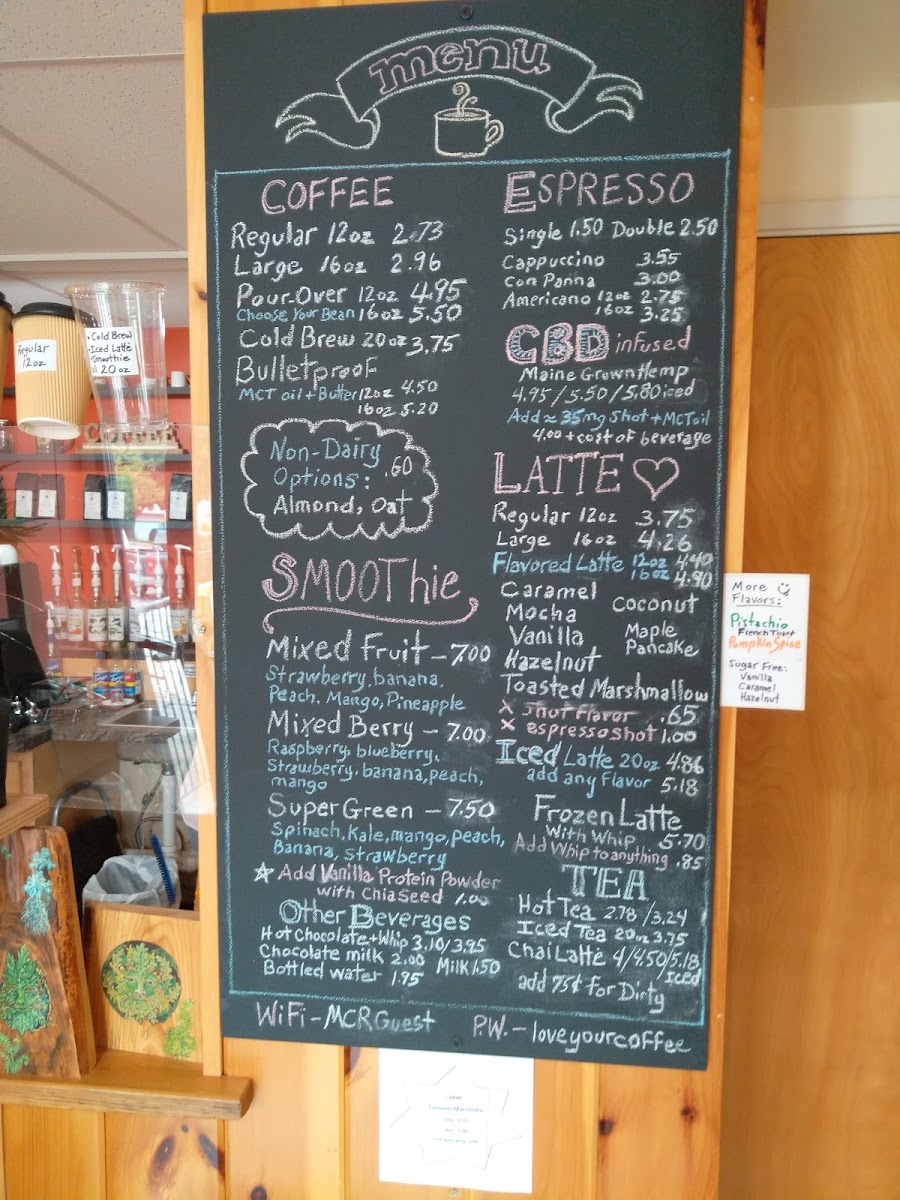 menu
COFFEE
Regular 12oz 2.73
Large 16oz 2.96
Pour-Over 12oz 4.95
Choose Your Bean 16oz 5.50
Cold Brew 20oz 3.75
Bulletproof
MCT oil + Butter 12oz 4.50
16oz 5.20
Non-Dairy
Options: .60
Almond, Oat
SMOOThie
Mixed Fruit - 7.00
Strawberry, banana,
Peach, Mango, Pineapple
Mixed Berry - 7.00
Raspberry, blueberry,
Strawberry, banana, peach,
mango
Super Green - 7.50
Spinach, Kale, mango, peach,
Banana, Strawberry
☆ Add Vanilla Protein Powder
with Chia Seed 1.00
Other Beverages
Hot Chocolate + Whip 3.10/3.95
Chocolate milk 2.00 Milk 1.50
Bottled water 1.95
ESPRESSO
Single 1.50 Double 2.50
Cappuccino 3.55
Con Panna 3.00
Americano 12oz 2.75
16oz 3.25
CBD infused
Maine Grown Hemp
4.95/5.50/5.80 iced
Add ≈ 35mg Shot + MCT oil
4.00 + cost of beverage
LATTE ♡
Regular 12oz 3.75
Large 16oz 4.26
Flavored Latte 12oz 4.40
16oz 4.90
Caramel
Mocha Coconut
Vanilla Maple
Hazelnut Pancake
Toasted Marshmallow
X shot flavor .65
X espresso shot 1.00
Iced Latte 20oz 4.86
add any Flavor 5.18
Frozen Latte
With Whip 5.70
Add Whip to anything .85
TEA
Hot Tea 2.78/3.24
Iced Tea 20oz 3.75
Chai Latte 4/4.50/5.18
Iced
add 75¢ for Dirty
WiFi - MCRGuest P.W. - loveyourcoffee
Regular
12oz
Cold Brew
Iced Latte
Smoothie
20oz
More
Flavors:
Pistachio
French Toast
Pumpkin Spice
Sugar Free:
Vanilla
Caramel
Hazelnut